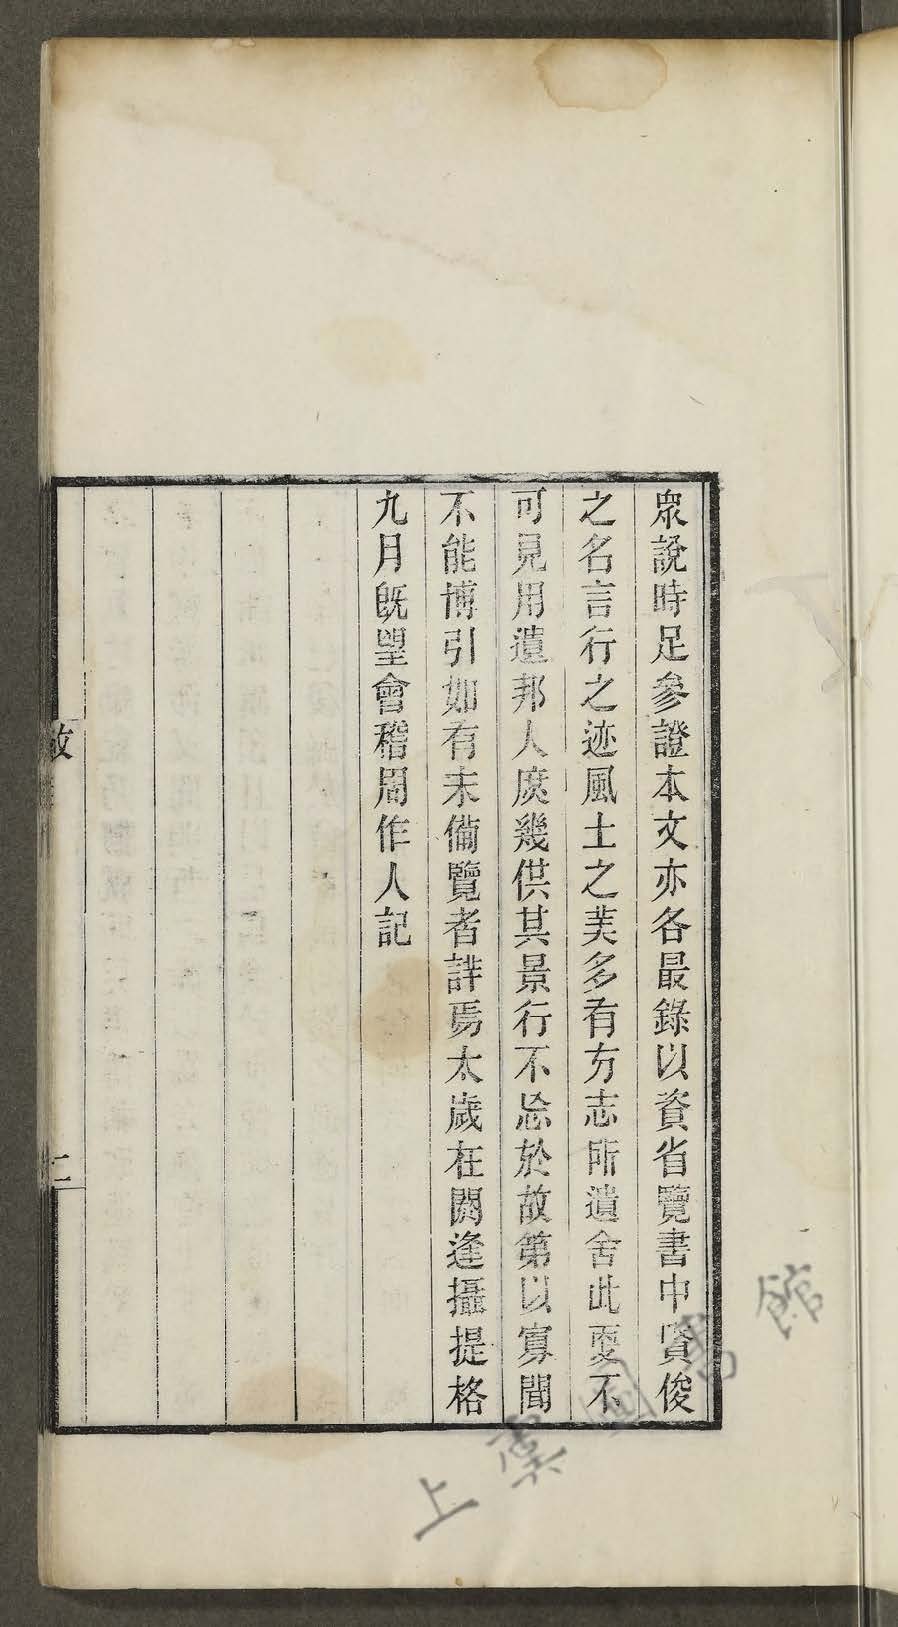 眾說時足參證本文亦各最錄以資省覽書中賢俊
之名言行之迹風土之美多有方志所遺舍此更不
可見用遺邦人庶幾供其景行不忘於故第以寡聞
不能博引如有未備覽者詳焉太歲在閼逢攝提格
九月旣望會稽周作人記
二
上虞圖書館